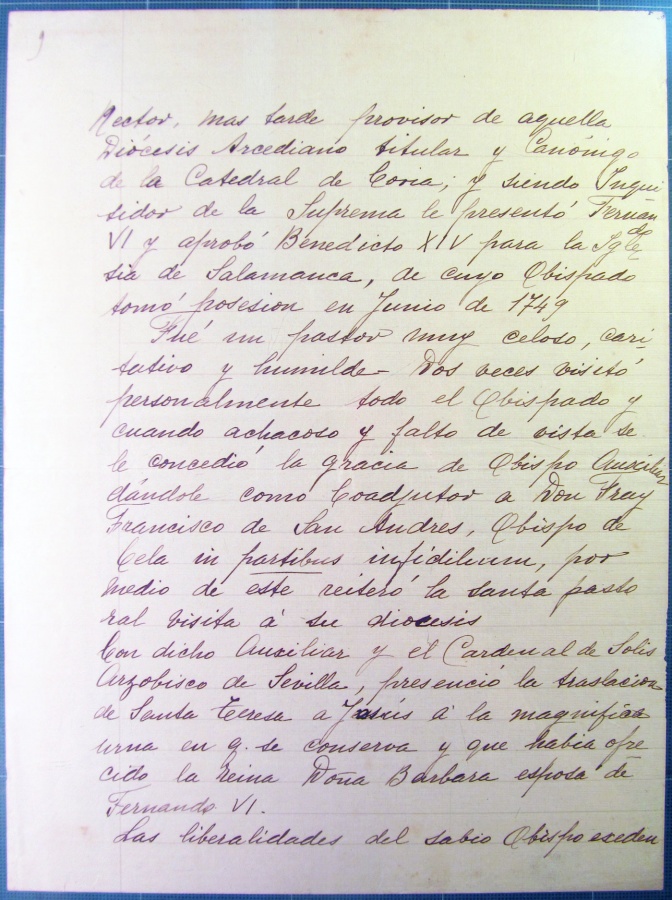 9
Rector, mas tarde provisor de aquella
Diócesis Arcediano titular y Canónigo
de la Catedral de Coria; y siendo Inqui
sidor de la Suprema le presentó Fernan
do
VI y aprobó Benedicto XIV para la Igle
sia de Salamanca, de cuyo Obispado
tomó posesion en Junio de 1749
Fué un pastor muy celoso, cari-
tativo y humilde- Dos veces visitó
personalmente todo el Obispado y
cuando achacoso y falto de vista se
le concedió la gracia de Obispo Auxiliar
dándole como Coadjutor a Don Fray
Francisco de San Andres, Obispo de
Cela in partibus infidilium, por
medio de este reiteró la santa pasto
ral visita á su diocesis
Con dicho Auxiliar y el Cardenal de Solis
Arzobisco de Sevilla, presenció la traslacion
de Santa Teresa a Jesús á la magnifica
urna en q. se conserva y que habia ofre
cido la reina Doña Barbara esposa de
Fernando VI.
Las liberalidades del sabio Obispo exceden